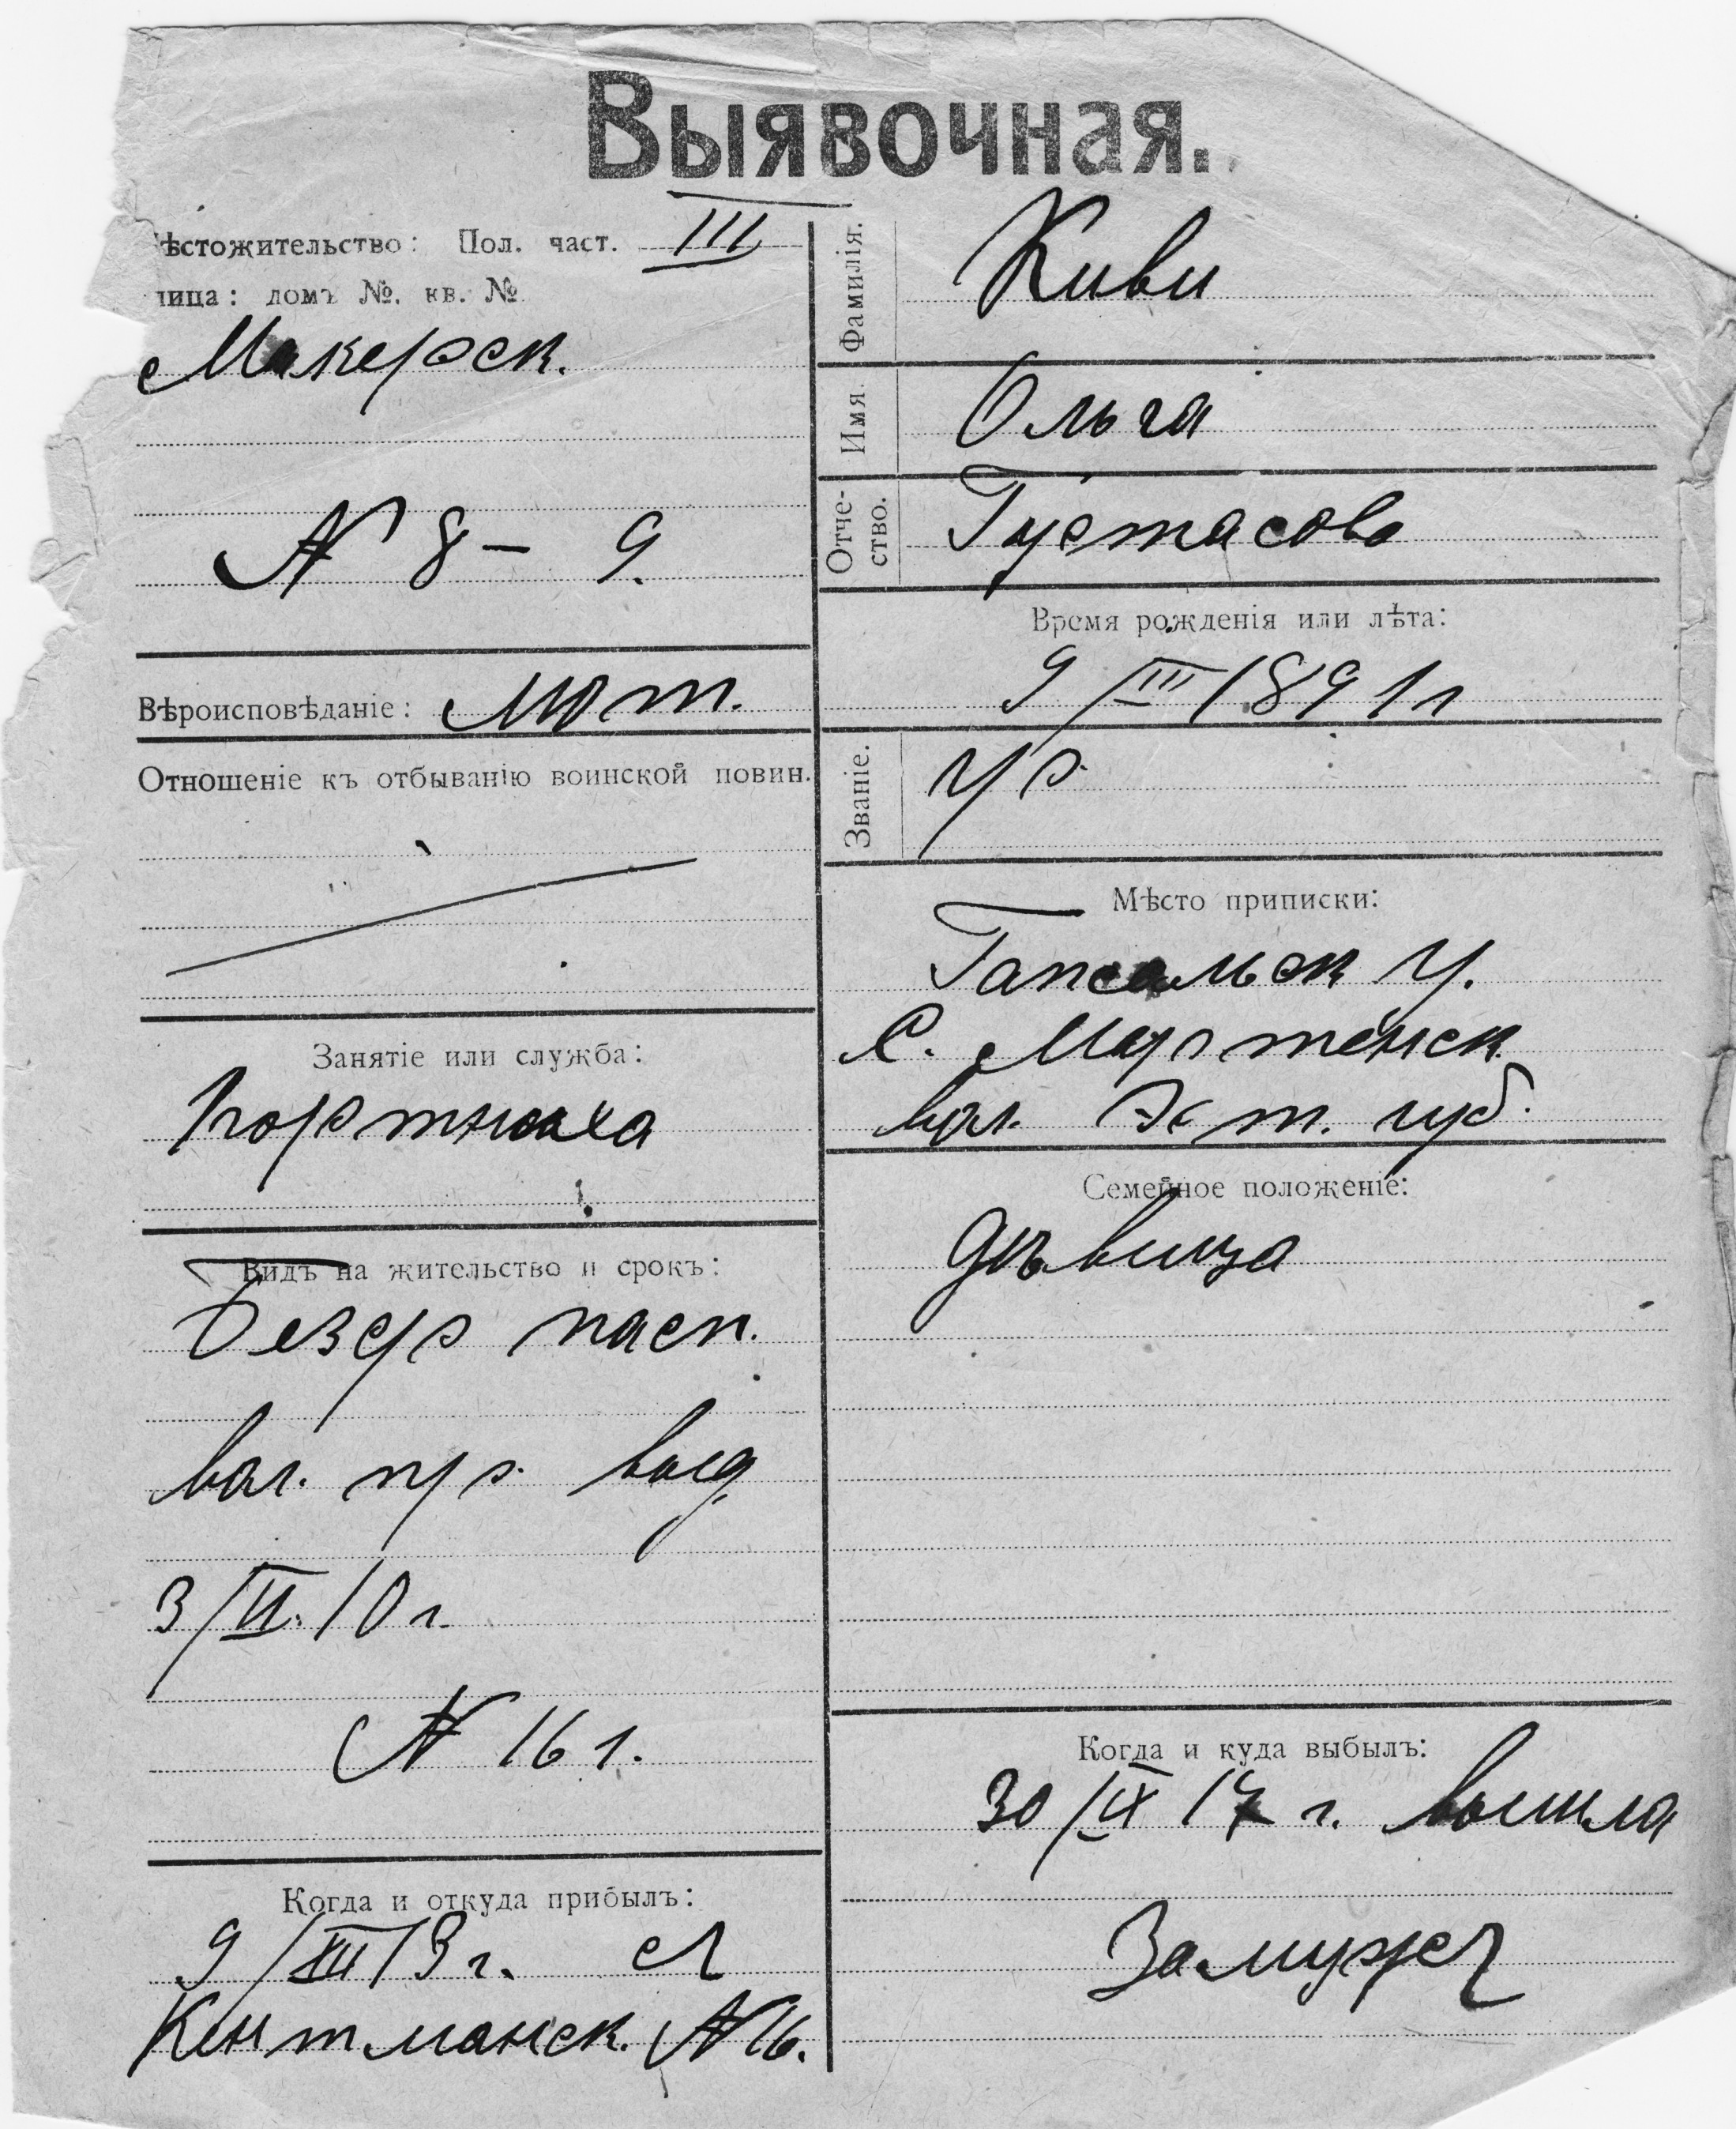 Выявочная.
ѣстожительство: Пол. част. III
лица: домъ №. кв. №
Макерск.
№ 8 – 9.
Вѣроисповѣданіе: Лют.
Отношеніе къ отбыванію воинской повин.
Занятіе или служба:
Портниха
Видъ на жительство и срокъ:
Безср пасп.
вол. пр. выд
3/II 10 г.
№ 161.
Когда и откуда прибылъ:
9/XII 13 г. съ
Кентманск. № 16.
Фамилія. Киви
Имя. Ольга
Отче-
ство. Густасова
Время рожденія или лѣта:
9/III 1891 г
Званіе. кр.
Мѣсто приписки:
Гапсальск у.
С. Мартенск
вол. Эст. губ.
Семейное положеніе:
дѣвица
Когда и куда выбылъ:
30/IX 17 г. вышла
Замужъ